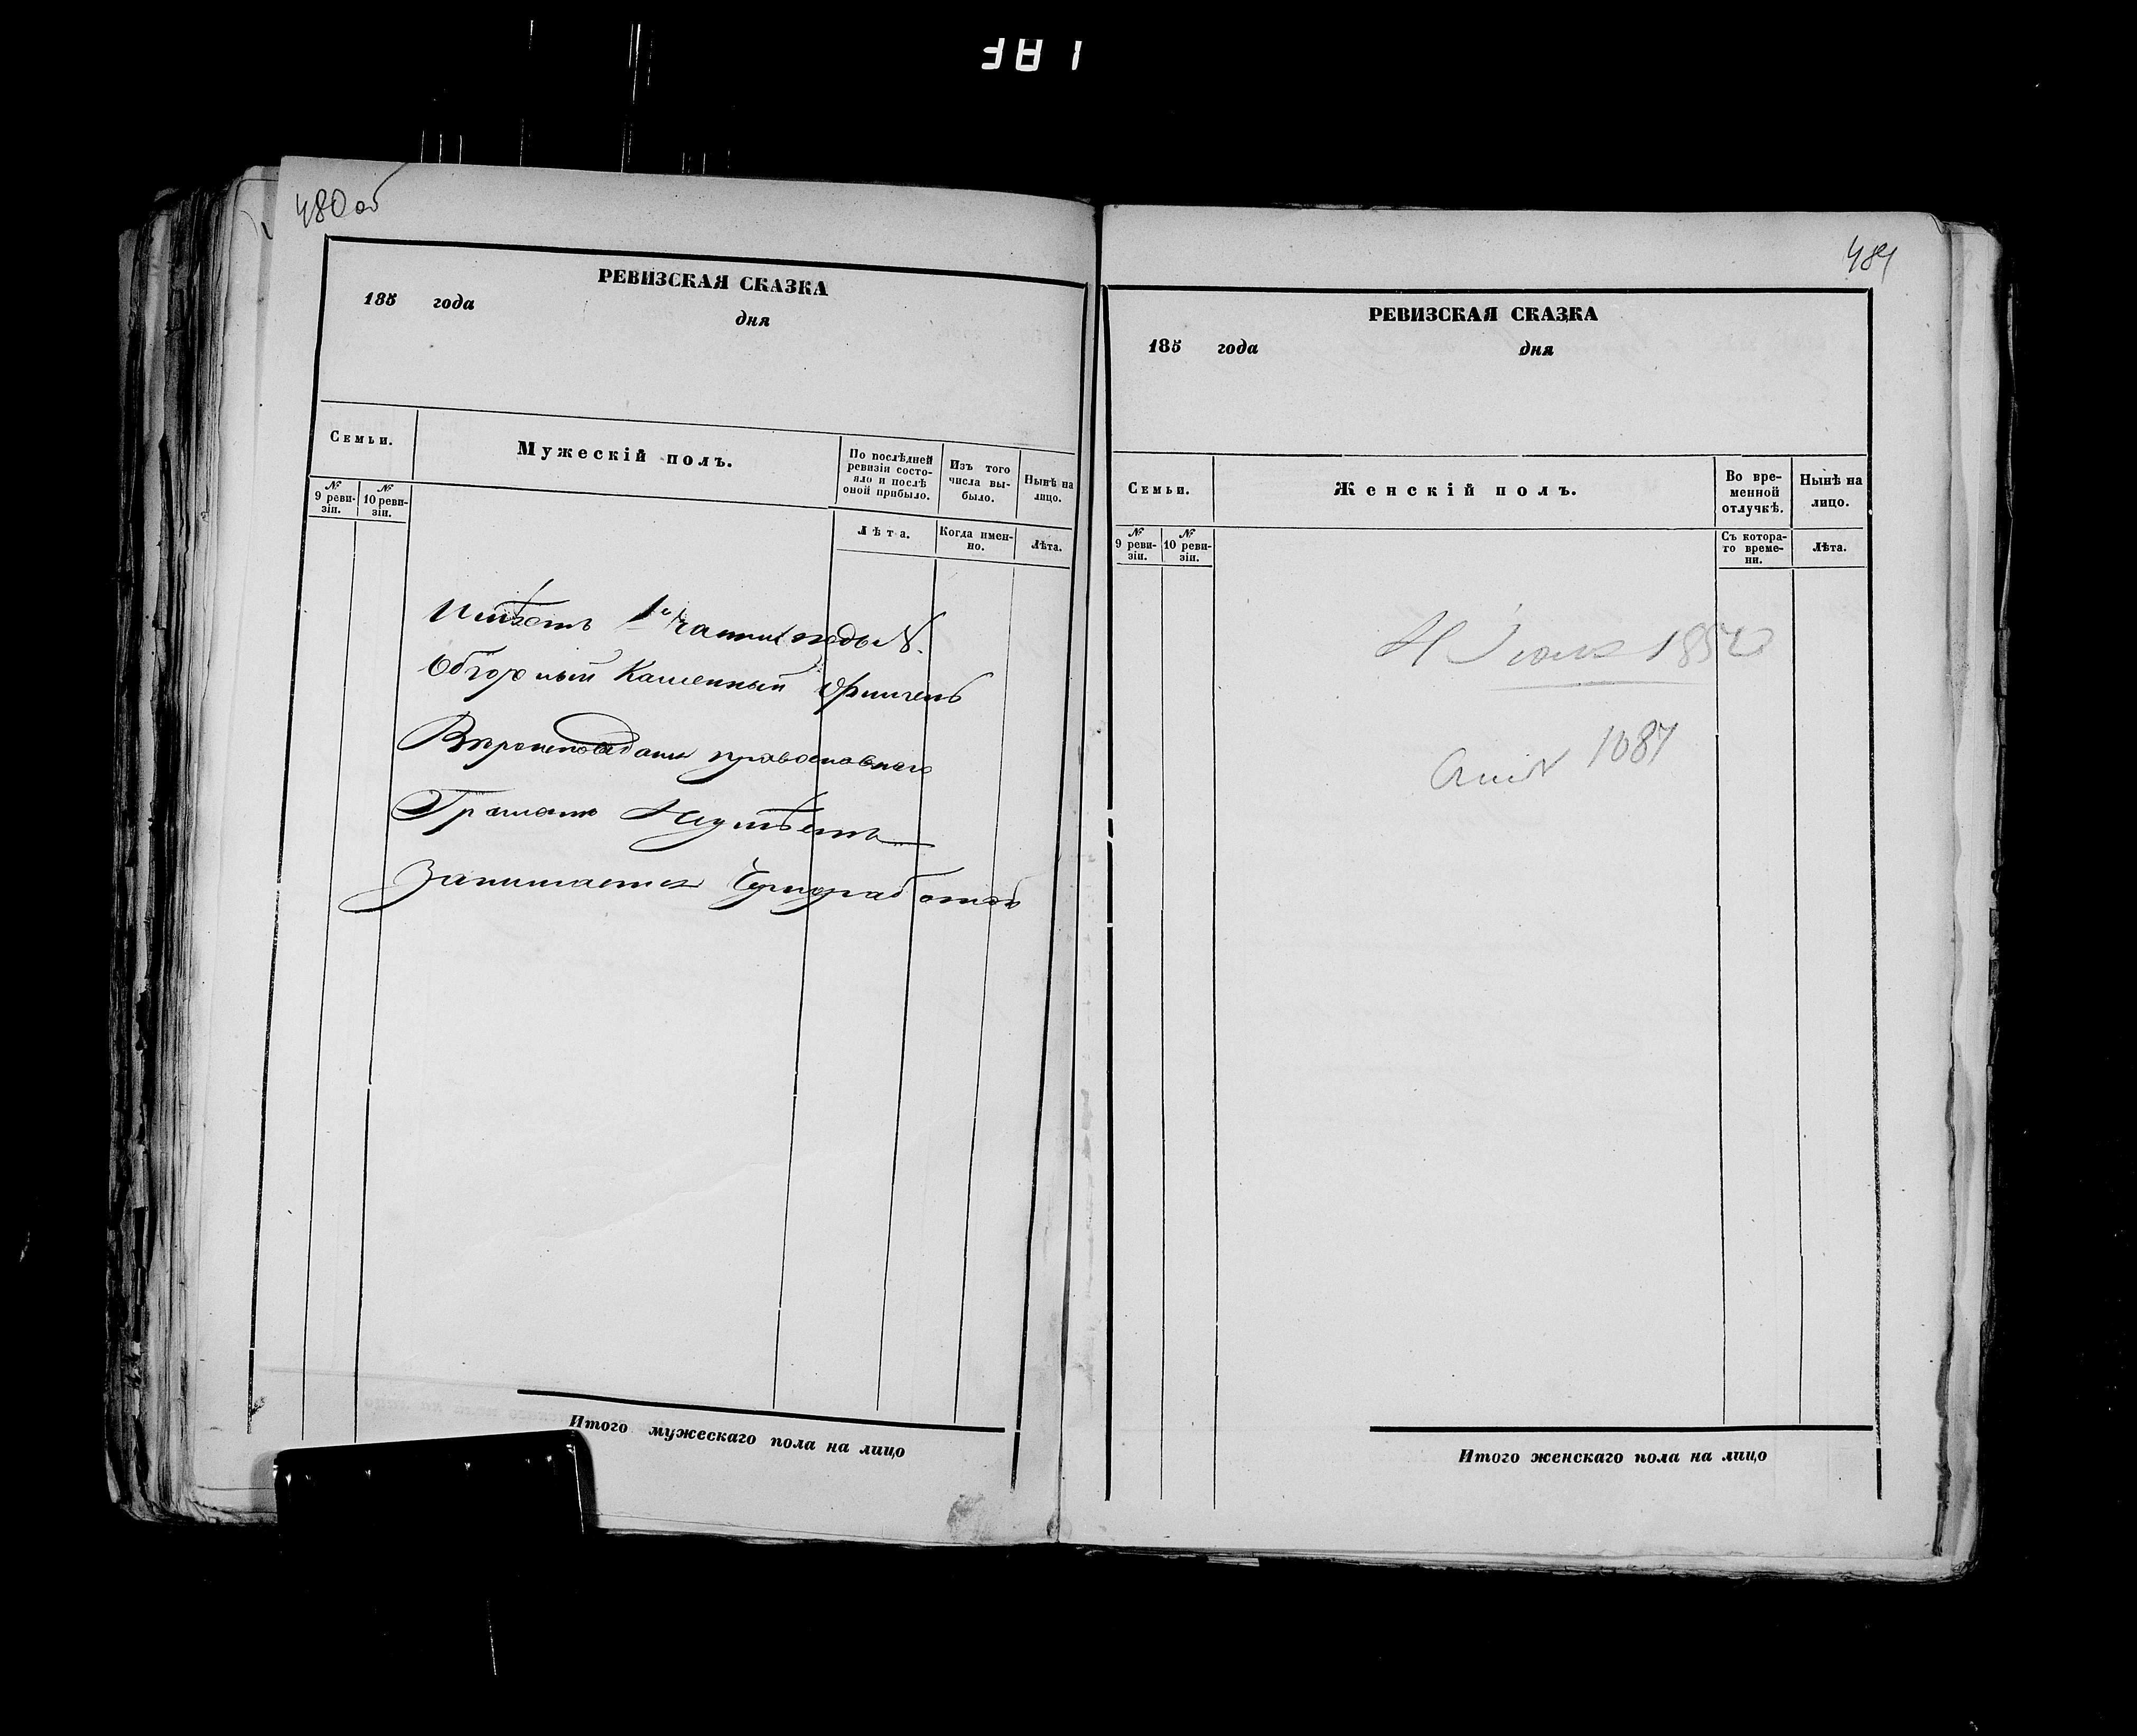 480 об
РЕВИЗСКАЯ СКАЗКА
185 года дня
Семьи.
Мужескій полъ.
По послѣдней ревизіи состояло и послѣ оной прибыло.
Изъ того числа выбыло.
Нынѣ на лицо.
№ 9 ревизіи.
№ 10 ревизіи.
Лѣта.
Когда именно.
Лѣта.
Имѣетъ 1й части подъ №.
Каменный
Вѣроисповѣданія православнаго
Грамотѣ Неумѣетъ
Занимается
Итого мужескаго пола на лицо
481
РЕВИЗСКАЯ СКАЗКА
185 года дня
Семьи.
Женскій полъ.
Во временной отлучкѣ.
Нынѣ на лицо.
№ 9 ревизіи.
№ 10 ревизіи.
Съ котораго времени.
Лѣта.
1087
Итого женскаго пола на лицо